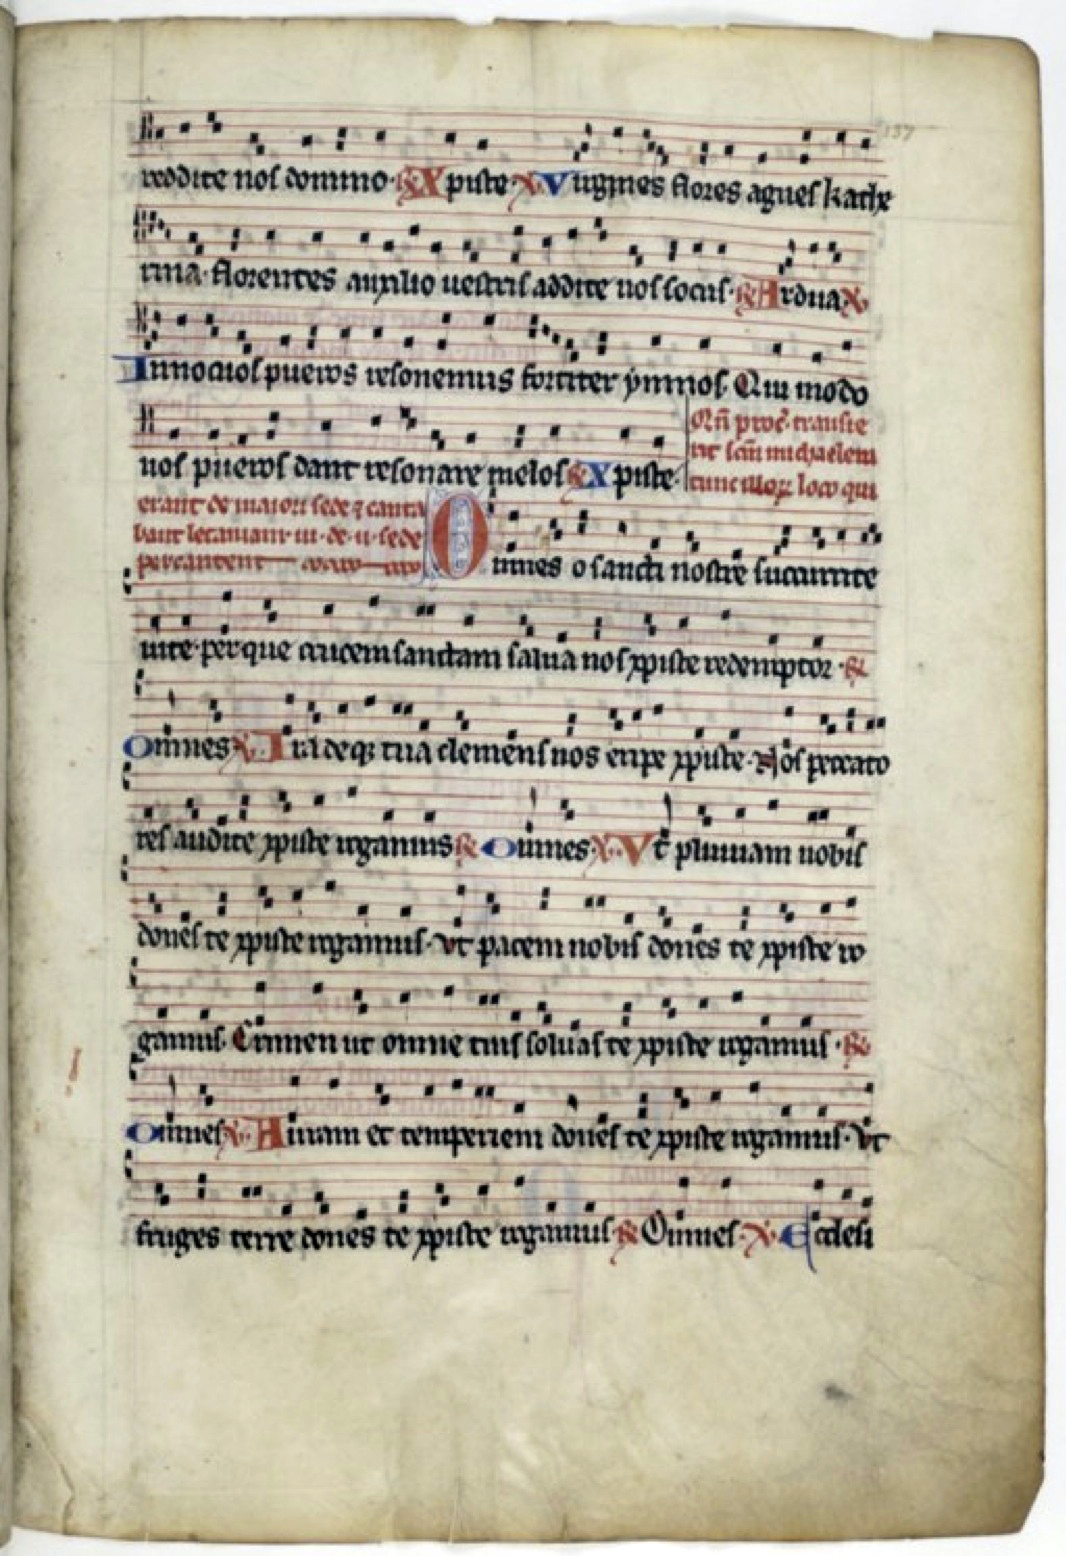 137
reddite nos domino ℟ Xpiste ℣ Virgines flores agnes kathe
rina florentes auxilio uestris addite nos locis ℟ Ardua ℣
Innocuos pueros resonemus fortiter ymnos Qui modo
nos pueros dant resonare melos ℟ Xpiste
Qñ proc̄ transie
rit sc̄m michaelem
tunc illoꝝ loco qui
erant de maiori sede ⁊ canta
bant letaniam iii de ii sede
percantent
Omnes o sancti nostre succurrite
uite perque crucem sanctam salua nos xpiste redemptor ℟
Omnes ℣ Iradeqꝫ tua clemens nos eripe xpiste Nos peccato
res audite xpiste rogamus ℟ Omnes ℣ Vt pluuiam nobis
dones te xpiste rogamus vt pacem nobis dones te xpiste ro
gamus Crimen ut omne tuis soluas te xpiste rogamus ℟
Omnes ℣ Auram et temperiem dones te xpiste rogamus Vt
fruges terre dones te xpiste rogamus ℟ Omnes ℣ Ecclesi